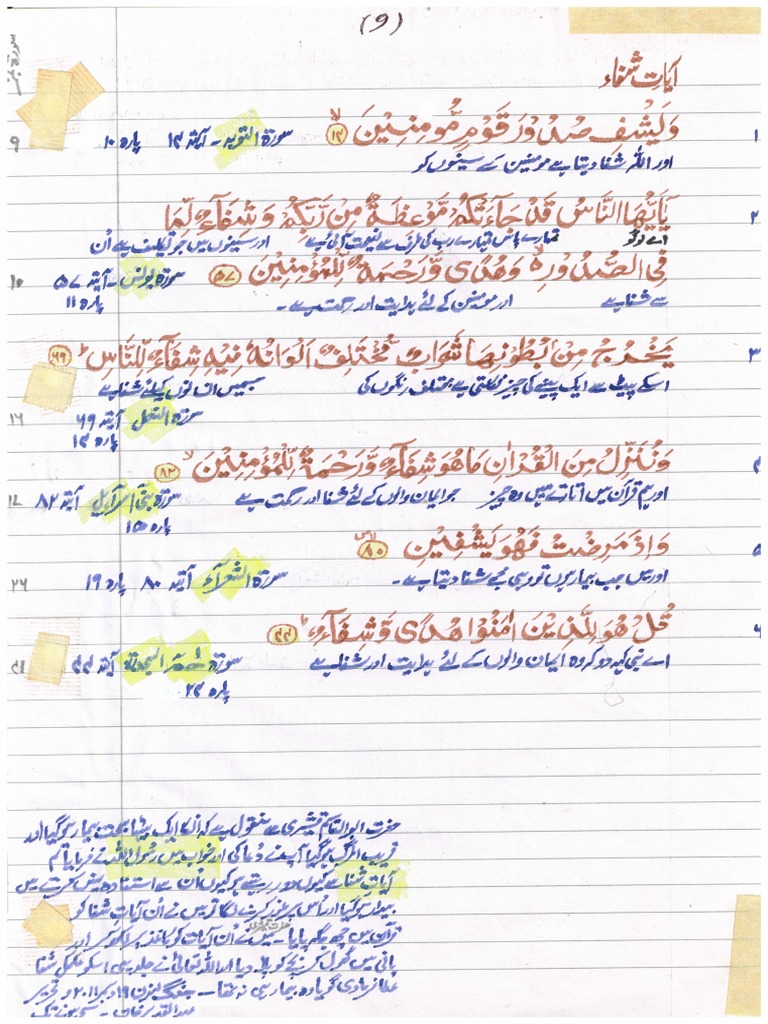 (9)
آیاتِ شفاء
سورۃ نمبر
۱ وَيَشْفِ صُدُورَ قَوْمٍ مُّؤْمِنِيْنَ ۱۴ سورۃ التوبہ - آیۃ ۱۴ پارہ ۱۰ 9
اور اللہ شفا دیتا ہے مومنین کے سینوں کو
۲ يٰۤاَيُّهَا النَّاسُ قَدْ جَآءَتْكُمْ مَّوْعِظَةٌ مِّنْ رَّبِّكُمْ وَشِفَآءٌ لِّمَا
اے لوگو تمہارے پاس تمہارے رب کی طرف سے نصیحت آئی ہے اور سینوں میں جو تکلیف ہے اُن
فِى الصُّدُوْرِ ۙ وَهُدًى وَّرَحْمَةٌ لِّلْمُؤْمِنِيْنَ ۵۷ سورۃ یونس - آیۃ ۵۷ 10
سے شفا ہے اور مومنین کے لئے ہدایت اور رحمت ہے - پارہ ۱۱
۳ يَخْرُجُ مِنْ بُطُوْنِهَا شَرَابٌ مُّخْتَلِفٌ اَلْوَانُهٗ فِيْهِ شِفَآءٌ لِّلنَّاسِ ۶۹
اسکے پیٹ سے ایک پینے کی چیز نکلتی ہے مختلف رنگوں کی جسمیں انسانوں کیلئے شفا ہے
سورۃ النحل آیۃ ۶۹ 16
پارہ ۱۴
۴ وَنُنَزِّلُ مِنَ الْقُرْاٰنِ مَا هُوَ شِفَآءٌ وَّرَحْمَةٌ لِّلْمُؤْمِنِيْنَ ۸۲
اور ہم قرآن میں اتارتے ہیں وہ چیز جو ایمان والوں کے لئے شفا اور رحمت ہے سورۃ بنی اسرآءیل آیۃ ۸۲ 17
پارہ ۱۵
۵ وَاِذَ مَرِضْتُ فَهُوَ يَشْفِيْنِ ۸۰
اور میں جب بیمار ہوں تو وہی مجھے شفا دیتا ہے - سورۃ الشعرآء آیۃ ۸۰ پارہ ۱۹ 26
۶ قُلْ هُوَ لِلَّذِيْنَ اٰمَنُوْا هُدًى وَّشِفَآءٌ ۴۴
اے نبی کہہ دو کہ وہ ایمان والوں کے لئے ہدایت اور شفا ہے سورۃ حٰمٓ السجدۃ آیۃ ۴۴ 41
پارہ ۲۴
حضرت ابوالقاسم قشیری سے منقول ہے کہ انکا ایک بیٹا بہت بیمار ہو گیا اور
قریب المرگ ہو گیا آپ نے دُعا کی اور خواب میں رسول اللہ نے فرمایا تم
آیاتِ شفا سے کیوں دور رہتے ہو کیوں اُن سے استفادہ نہیں کرتے میں
بیدار ہو گیا اور اُس پر غور کرنے لگا تو میں نے اُن آیاتِ شفا کو
قرآن میں چھ جگہ پایا - میں نے اُن آیات کو کاغذ پر لکھ کر اور
پانی میں گھول کر بچے کو پلا دیا اور اللہ تعالیٰ نے جلد ہی اسکو مکمل شفا
عطا فرما دی گویا وہ بیمار ہی نہ تھا - جنگ لندن ۱۹ دسمبر ۲۰۱۱ء تحریر
عبدالقدیر خان -